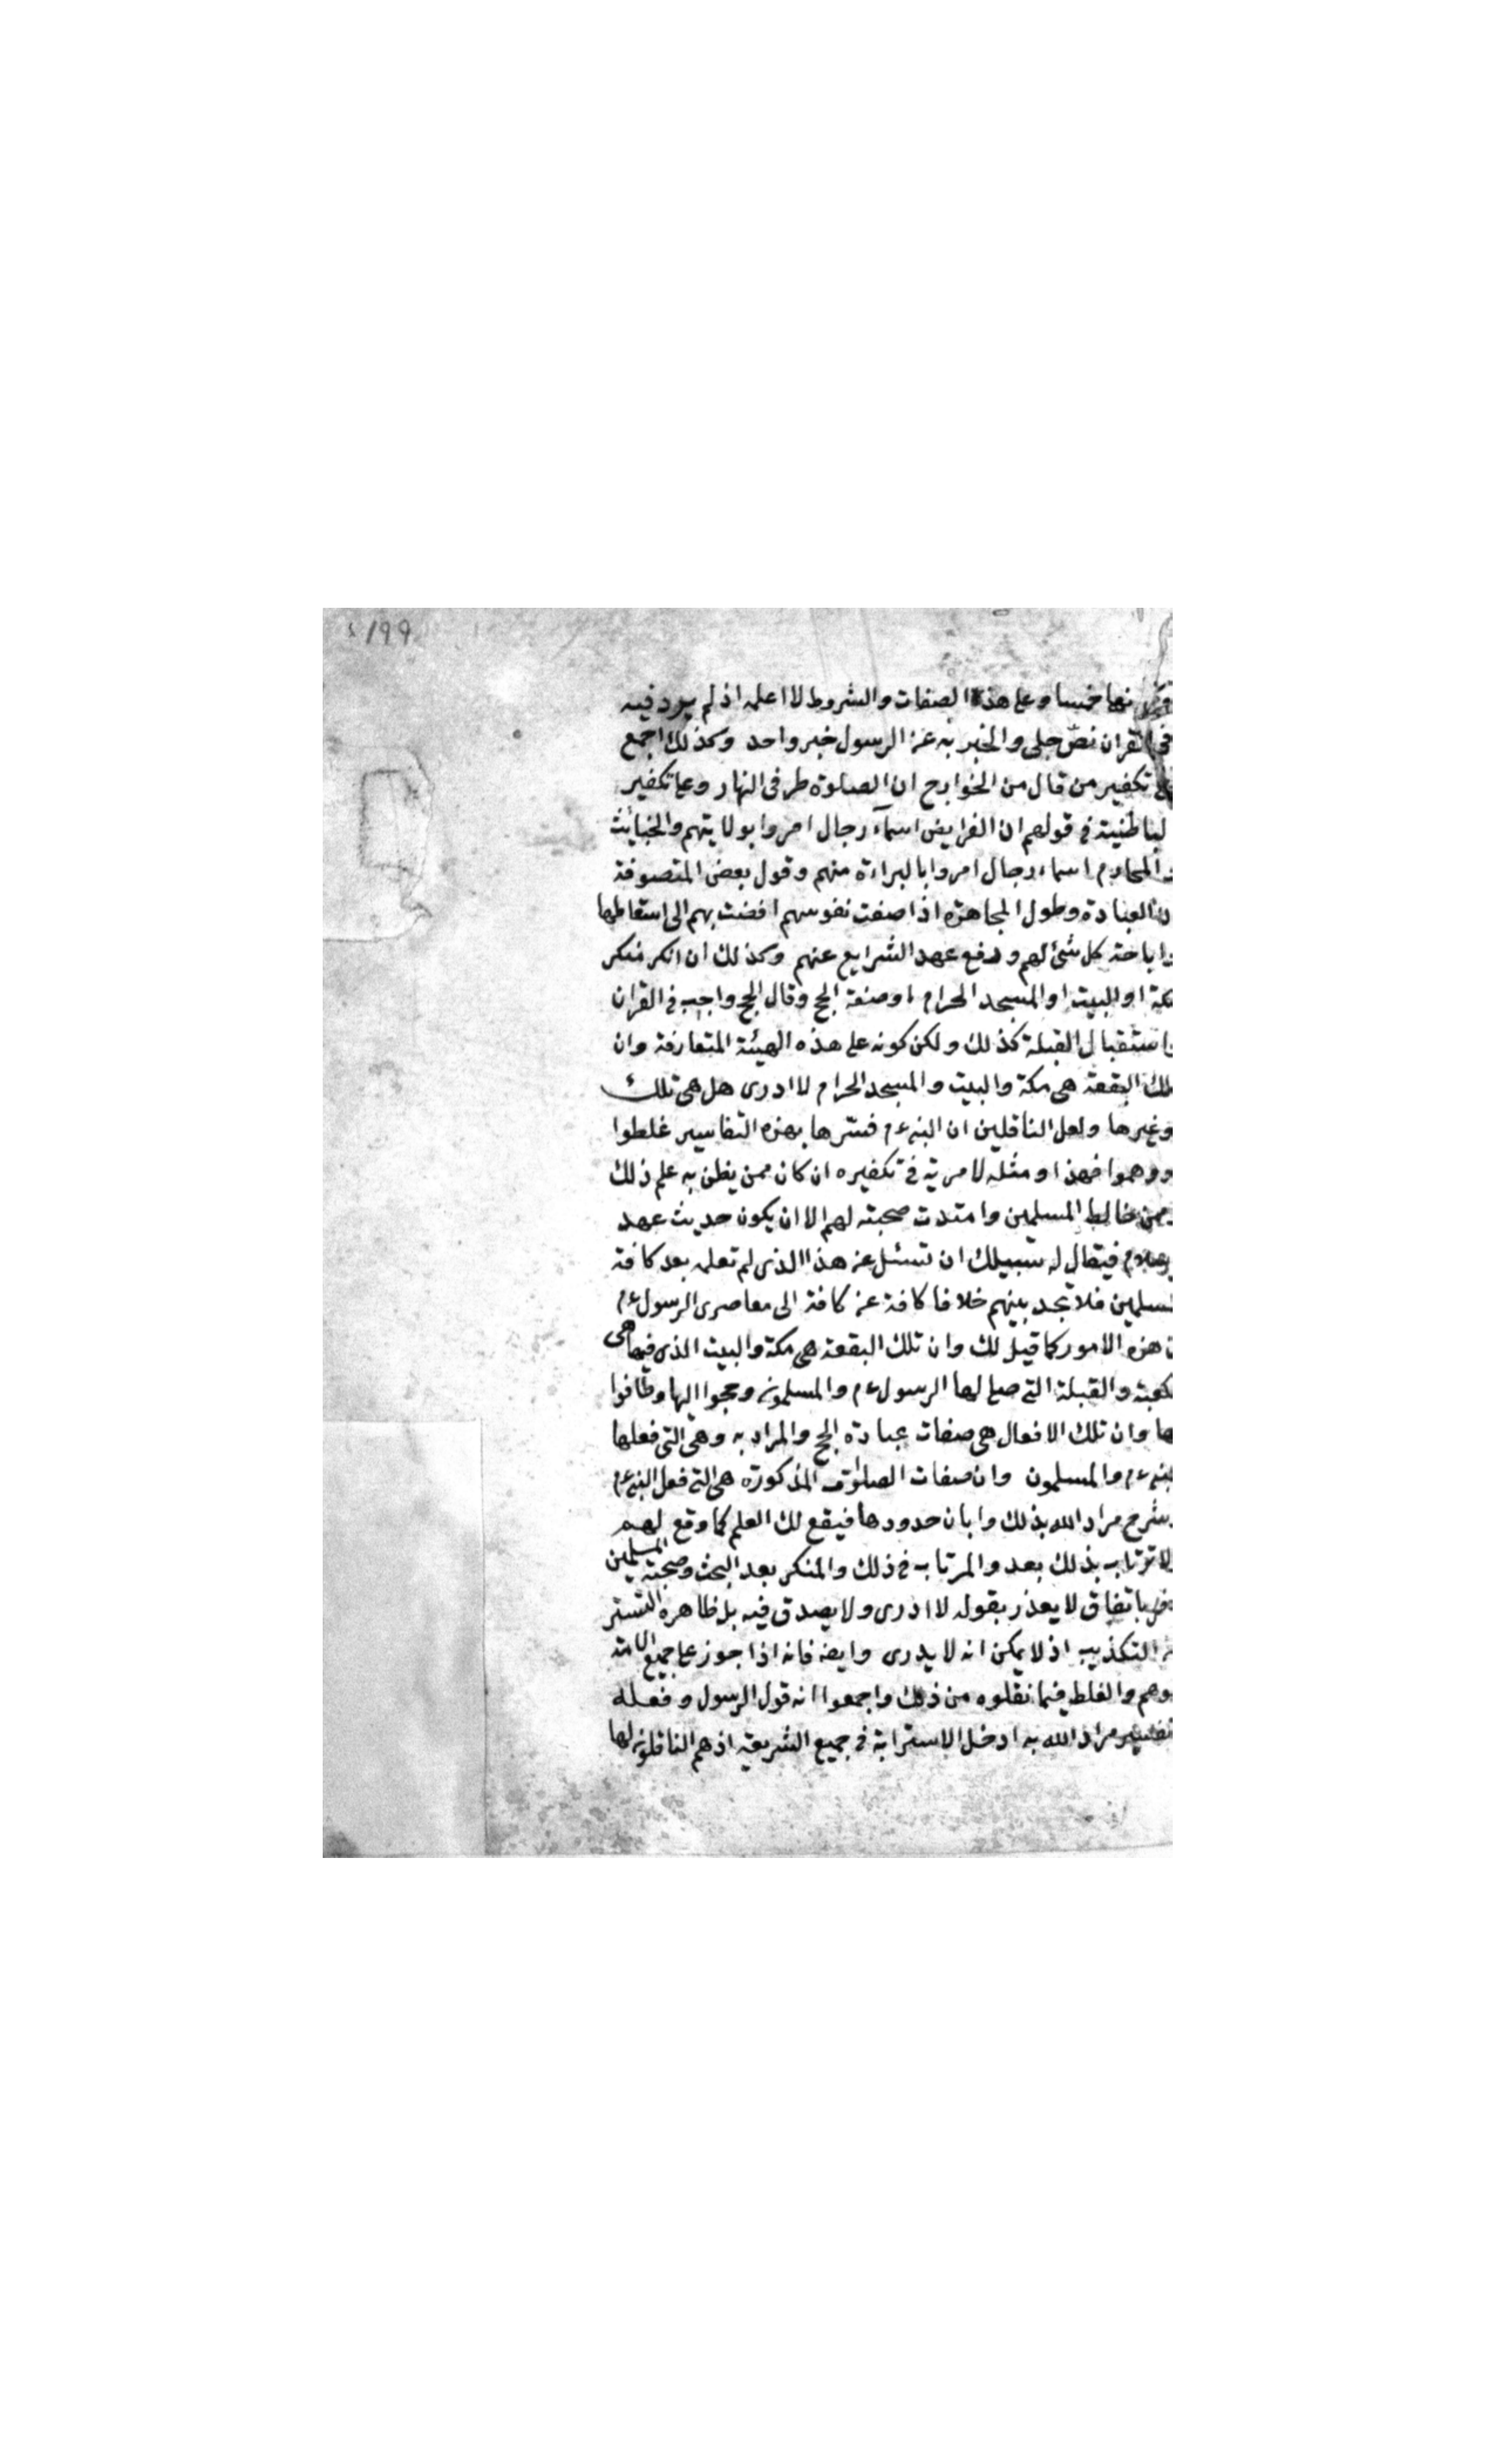 199
وكونها خمسا وعلى هذه الصفات والشروط لا اعلمه اذ لم يرد فيه
في القران نص جلى والخبر به عن الرسول خبر واحد وكذلك اجمع
على تكفير من قال من الخوارج ان الصلوة طرفى النهار وعلى تكفير
لباطنية في قولهم ان الفرايض اسمآء رجال امروا بولايتهم والخبايث
والمحارم اسماء رجال امروا بالبراءة منهم وقول بعض المتصوفة
ان العبادة وطول المجاهدة اذا صفت نفوسهم افضت بهم الى اسقاطها
واباحة كل شئ لهم ورفع عهد الشرايع عنهم وكذلك ان انكر منكر
مكة او البيت او المسجد الحرام او صفة الحج وقال الحج واجب في القران
واستقبال القبلة كذلك ولكن كونه على هذه الهيئة المتعارفة وان
تلك البقعة هى مكة والبيت والمسجد الحرام لا ادرى هل هى تلك
وغيرها ولعل الناقلين ان النبى ءم فسّرها بهذه التفاسير غلطوا
ووهموا فهذا ومثله لا مرية في تكفيره ان كان ممن يظن به علم ذلك
وممن خالط المسلمين وامتدت صحبته لهم الا ان يكون حديث عهد
باسلام فيقال له سبيلك ان تسئل عن هذا الذى لم تعلمه بعد كافة
لمسلمين فلا تجد بينهم خلافا كافة عن كافة الى معاصرى الرسول ءم
ن هذه الامور كما قيل لك وان تلك البقعة هى مكة والبيت الذى فيها هى
لكعبة والقبلة التى صلى لها الرسول ءم والمسلمون وحجوا اليها وطافوا
بها وان تلك الافعال هى صفات عبادة الحج والمراد به وهى التى فعلها
لنبى ءم والمسلمون وان صفات الصلوة المذكورة هى التى فعل النبى ءم
وشرح مراد الله بذلك وابان حدودها فيقع لك العلم كما وقع لهم
ولا ترتاب بذلك بعد والمرتاب في ذلك والمنكر بعد البحث وصحبة المسلمين
كافر باتفاق لا يعذر بقوله لا ادرى ولا يصدق فيه بل ظاهره التستر
عن التكذيب اذ لا يمكن انه لا يدرى وايضه فانه اذا جوز على جميع الامة
لوهم والغلط فيما نقلوه من ذلك واجمعوا انه قول الرسول وفعله
تفسير مراد الله به ادخل الاسترابة في جميع الشريعة اذ هم الناقلون لها